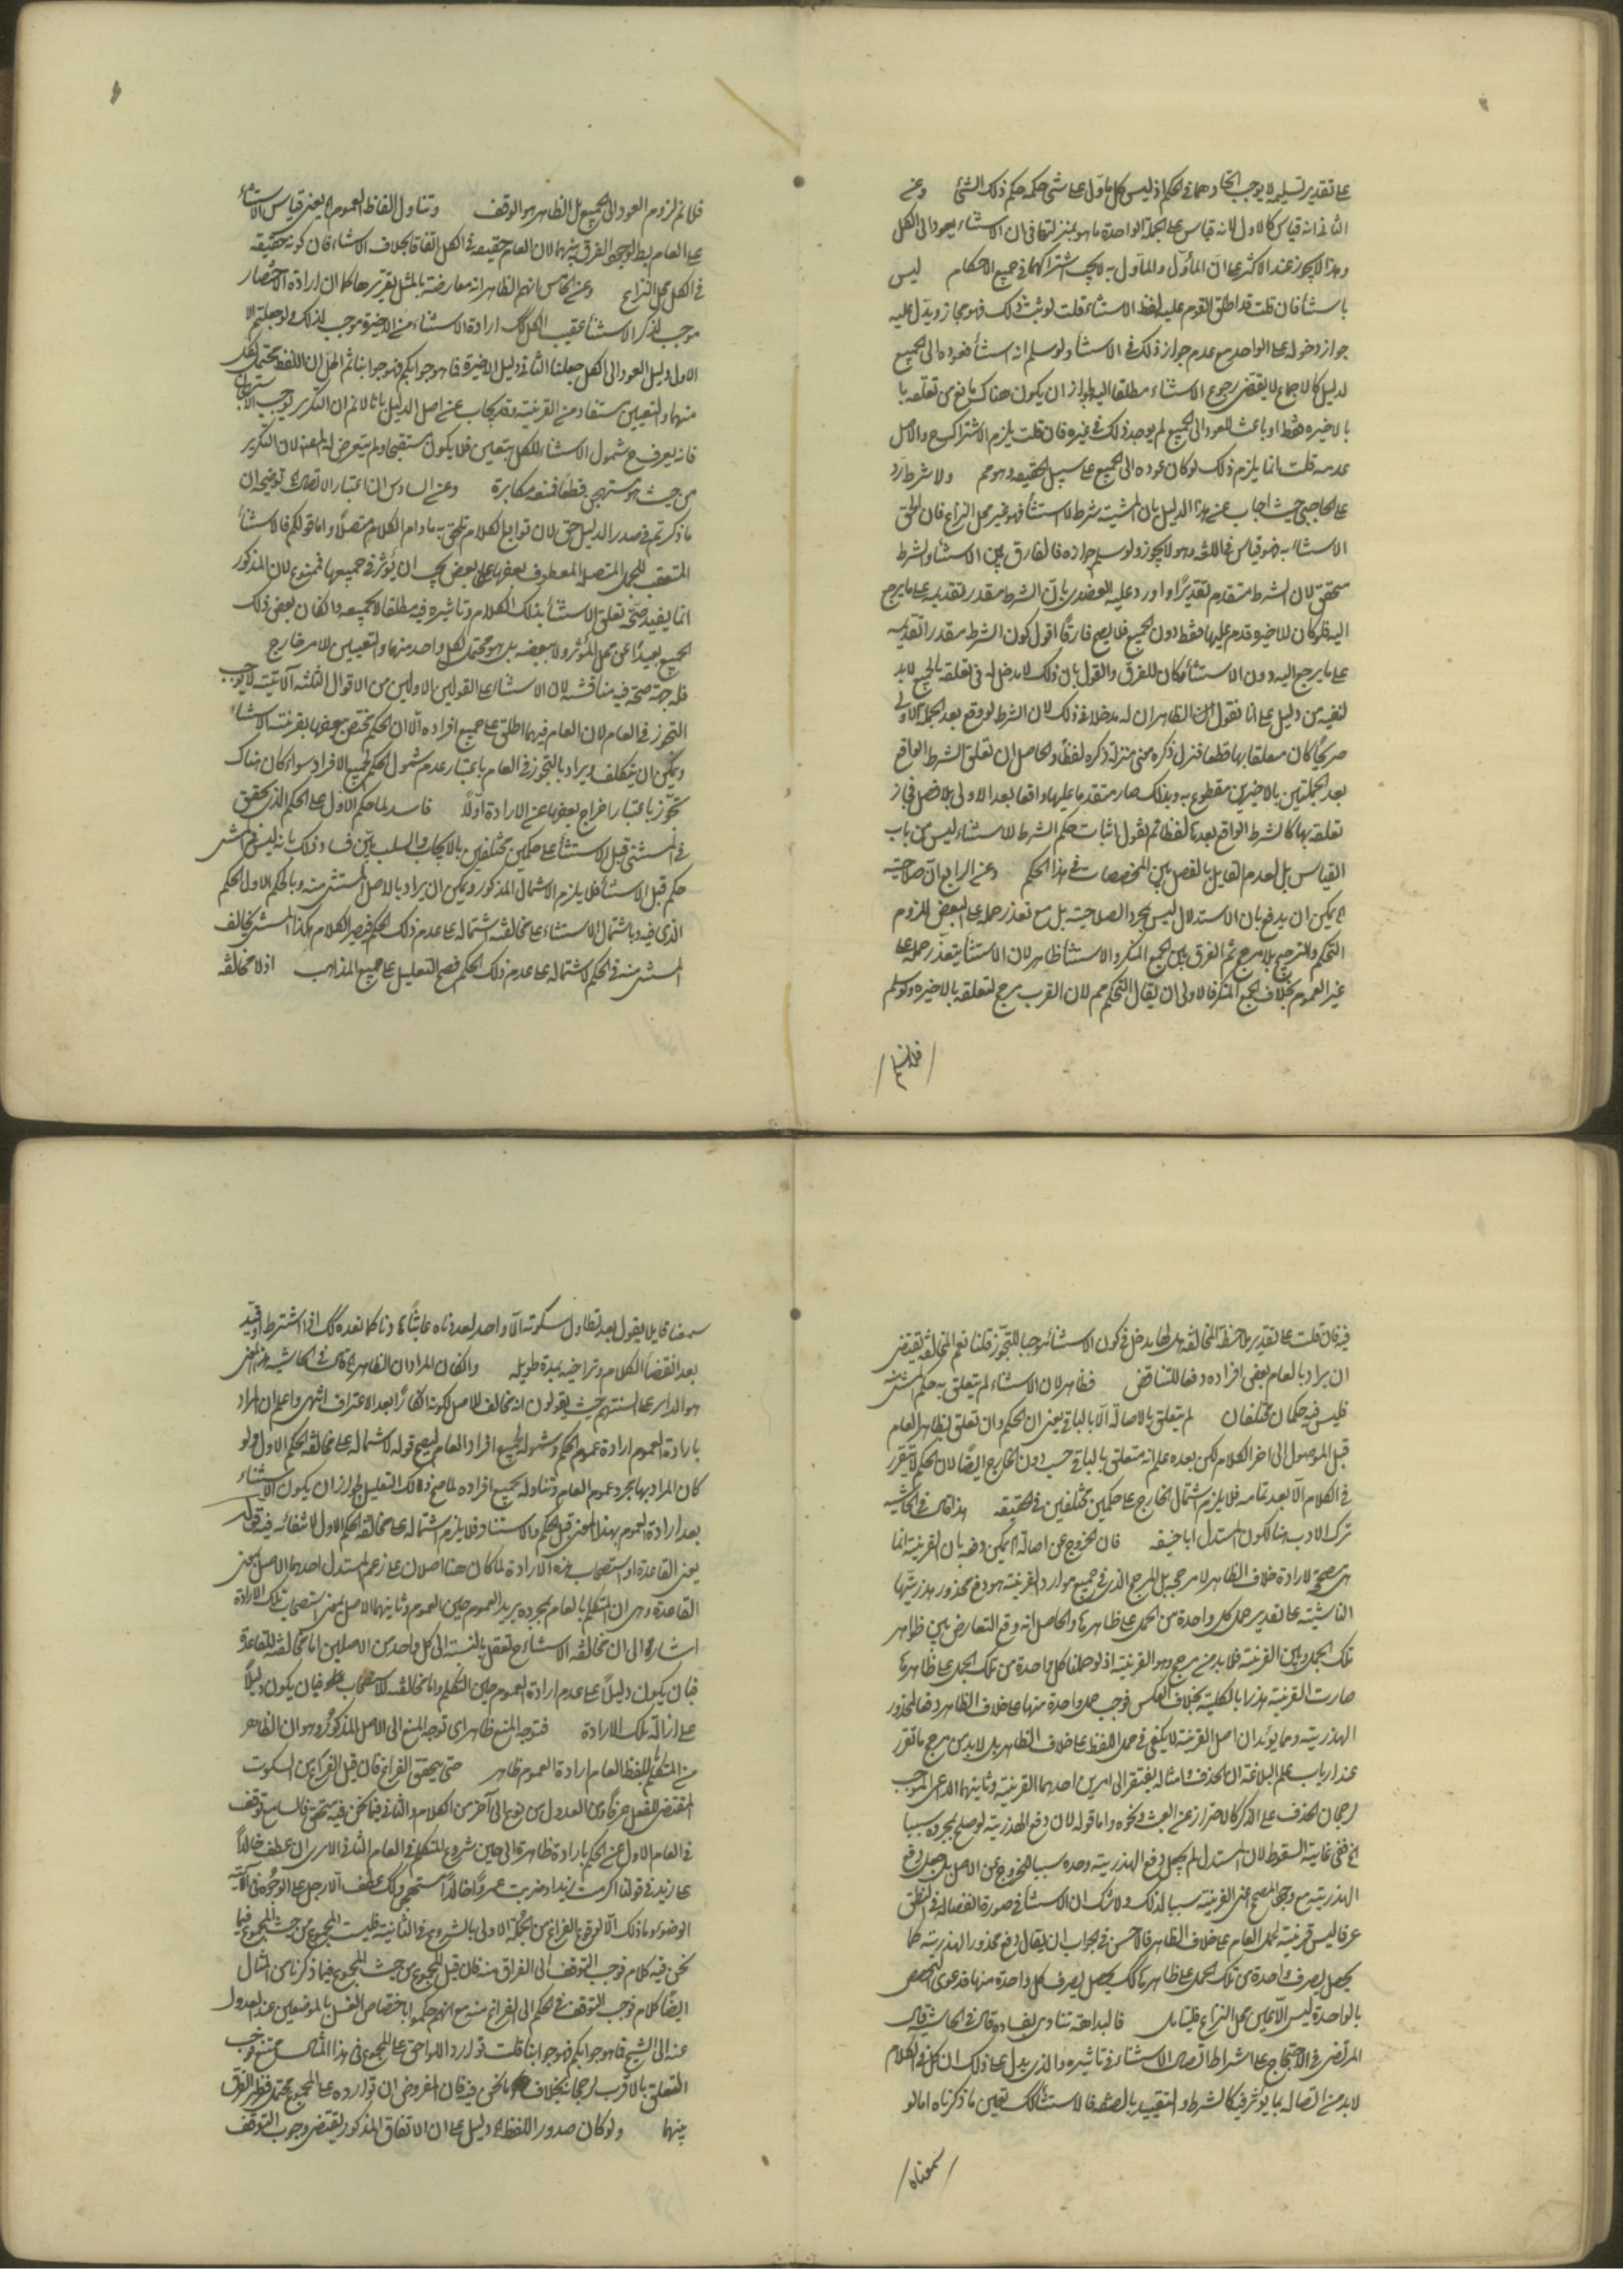 على تقدير تسليمه لا يوجب اتحادهما في الحكم اذ ليس كل ماول على شئ حكمه حكم ذلك الشئ وعن
الثاني انه قياس كالاول لانه قياس على الجملة الواحدة ما هو بمنزلتها في ان الاستثناء يعود الى الكل
وهذا لا يجوز عند الاكثر على ان المأول والمأول به لا يجب اشتراكهما في جميع الاحكام ليس
باستثناء فان قلت قد اطلق القوم عليه لفظ الاستثناء قلت لو ثبت ذلك فهو مجاز ويدل عليه
جواز دخوله على الواحد مع عدم جواز ذلك في الاستثناء ولو سلم انه استثناء فعوده الى الجميع
لدليل كالاجماع لا يقتضي رجوع الاستثناء مطلقا اليه لجواز ان يكون هناك مانع من تعلقه با
بالاخيرة فقط او باعث للعود الى الجميع لم يوجد ذلك في غيره فان قلت يلزم الاشتراك ح والاصل
عدمه قلت انما يلزم ذلك لو كان عوده الى الجميع على سبيل الحقيقة وهو مم ولا شرط رد
على الحاجبي حيث اجاب عن هذا الدليل بان المشية شرط لا استثناء فهو غير محل النزاع فان الحق
الاستثناء به فهو قياس في اللغة وهو لا يجوز ولو سلم جوازه فالفارق بين الاستثناء والشرط
متحقق لان الشرط متقدم تقديرا واورد عليه العضدي بان الشرط مقدر تقديمه على ما يرجع
اليه فلو كان للاخيرة قدم عليها فقط دون الجميع فلا يصلح فارقا اقول كون الشرط مقدر التقديم
على ما يرجع اليه دون الاستثناء كان للفرق والقول بان ذلك لا مدخل له في تعلقه بالجميع لابد
لنفيه من دليل على انا نقول الظاهر ان له مدخلا في ذلك لان الشرط لو وقع بعد الجملة الاولى
صريحا كان معلقا بها قطعا فنزل ذكره معنى منزلة ذكره لفظا والحاصل ان تعلق الشرط الواقع
بعد الجملتين بالاخيرتين مقطوع به وبذلك صار متقدما عليها واقعا بعد الاولى بلا فصل فجاز
تعلقه بها كالشرط الواقع بعدها لفظا ثم نقول اثبات حكم الشرط للاستثناء ليس من باب
القياس بل لعدم القايل بالفصل بين المخصصات في هذا الحكم وعن الرابع ان صلاحيته
اه يمكن ان يدفع بان الاستدلال ليس بمجرد الصلاحية بل مع تعذر حمله على البعض للزوم
التحكم والترجيح بلا مرجح ثم الفرق بين الجمع المنكر والاستثناء ظاهر لان الاستثناء يتعذر حمله على
غير العموم بخلاف الجمع المنكر فالاولى ان يقال التحكم مم لان القرب مرجح لتعلقه بالاخيرة ولو سلم
فلا نم
فلا نم لزوم العود الى الجميع بل الظاهر هو الوقف وتناول الفاظ العموم اه يعني قياس الاستثناء
على العام بط لوجود الفرق بينهما لان العام حقيقة في الكل اتفاقا بخلاف الاستثناء فان كونه حقيقة
في الكل محل النزاع وعن الخامس انهم الظاهر انه معارضة بالمثل تقريرها كما ان ارادة الاختصار
موجب لذكر الاستثناء عقيب الكل كك ارادة الاستثناء من الاخيرة موجب لذلك ولو جعلتم الا
الاول دليل العود الى الكل جعلنا الثاني دليل الاخيرة فما هو جوابكم فهو جوابنا ثم الحق ان اللفظ محتمل لكل
منهما والتعيين مستفاد من القرينة وقد يجاب عن اصل الدليل بانا لا نم ان التكرير يوجب الاستهجان
فانه يعرف ح شمول الاستثناء للكل بتعين فلا يكون مستقبحا ولم يتعرض له المص لان التكرير
من حيث هو مستهجن قطعا فمنعه مكابرة وعن السادس ان اعتبار الاتصال توضيحه ان
ما ذكرتم في صدر الدليل حق لان توابع الكلام تلحق به ما دام الكلام متصلا واما قولكم فالاستثناء
المتعقب للجمل المتصلة المعطوف بعضها على بعض يجب ان يؤثر في جميعها فممنوع لان المذكور
انما يفيد صحة تعلق الاستثناء بذلك الكلام وتاثيره فيه مطلقا لا بجميعه والا كان بعض ذلك
الجميع بعيدا عن محل المؤثر ولا ببعضه بل هو محتمل لكل واحد منهما والتعيين لامر خارج
فله جهة صحة فيه مناقشة لان الاستثناء على القولين الاولين من الاقوال الثلثة الآتية لا يوجب
التجوز في العام لان العام فيهما اطلق على جميع افراده الا ان الحكم مختص ببعضها بقرينة الاستثناء
ويمكن ان يتكلف ويراد بالتجوز في العام باعتبار عدم شمول الحكم لجميع الافراد سواء كان هناك
تجوز باعتبار اخراج بعضها عن الارادة اولا فاسد لما حكم الاول على الحكم الذي تحقق
في المستثنى قبل الاستثناء على حكمين مختلفين بالايجاب والسلب بين فساد ذلك بانه ليس في المستثنى
حكم قبل الاستثناء فلا يلزم الاشتمال المذكور ويمكن ان يراد بالاصل المستثنى منه وبالحكم الاول الحكم
الذي فيه وباشتمال الاستثناء على مخالفته اشتماله على عدم ذلك الحكم فيصير الكلام هكذا المستثنى مخالف
المستثنى منه في الحكم لاشتماله على عدم ذلك الحكم فصح التعليل على جميع المذاهب اذ لا مخالفة
فيه فان قلت على تقدير ملاحظة المخالفة هل لها مدخل في كون الاستثناء موجبا للتجوز قلنا نعم المخالفة تقتضي
ان يراد بالعام بعض افراده دفعا للتناقض فظاهر لان الاستثناء لم يتعلق به حكم المستثنى منه
فليس فيه حكمان مختلفان لم يتعلق بالاصالة الا بالباقي يعني ان الحكم وان تعلق بظاهر العام
قبل الوصول الى اخر الكلام لكن بعده علم انه متعلق بالباقي حسب دون الخارج ايضا لان الحكم لا يتقرر
في الكلام الا بعد تمامه فلا يلزم اشتمال الخارج على حكمين مختلفين في الحقيقة هذا قال في الحاشية
ترك الادب هنا لكون المستدل ابا حنيفة فان الخروج عن اصالة اه يمكن دفعه بان القرينة انما
هي مصححة لارادة خلاف الظاهر لا مرجحة بل المرجح الذي في جميع موارد القرينة هو دفع محذور هذريتها
الناشئة على تقدير حمل كل واحدة من الجمل على ظاهرها والحاصل انه وقع التعارض بين ظواهر
تلك الجمل وبين القرينة فلابد من مرجح وهو القرينة اذ لو حملنا كل واحدة من تلك الجمل على ظاهرها
صارت القرينة هذرا بالكلية بخلاف العكس فوجب حمل واحدة منها على خلاف الظاهر دفعا لمحذور
الهذرية ومما يؤيد ان اصل القرينة لا يكفي في حمل اللفظ على خلاف الظاهر بل لابد من مرجح ما تقرر
عند ارباب علم البلاغة ان الحذف وامثاله يفتقر الى امرين احدهما القرينة وثانيهما الداعي الموجب
لرجحان الحذف على الذكر كالاحتراز عن العبث ونحوه واما قوله لان دفع الهذرية لو صلح بمجرده سببا
اه ففي غاية السقوط لان المستدل لم يجعل دفع الهذرية وحده سببا للخروج عن الاصل بل جعل دفع
الهذرية مع وجود المصحح اعني القرينة سببا لذلك ولا شك ان الاستثناء في صورة انفصاله في النطق
عرفا ليس قرينة لحمل العام على خلاف الظاهر فالاحسن في الجواب ان يقال دفع محذور الهذرية كما
يحصل بصرف واحدة من تلك الجمل على ظاهرها كك يحصل بصرف كل واحدة منها فدعوى التخصيص
بالواحدة ليس الا عين محل النزاع فليتامل فالبداهة تنادي بفساده قال في الحاشية قال
المرتضى في الاحتجاج على اشتراط اتصال الاستثناء في تاثيره والذي يدل على ذلك ان كل في الكلام
لابد من اتصاله بما يؤثر فيه كالشرط والتقييد بالصفة فالاستثناء كك تعين ما ذكرناه امالو
سمعناه
سمعنا قايلا يقول بعد تطاول سكوته الا واحد لعددناه عابثا كما نعده كك اذا اشترط او قيد
بعد انقضاء الكلام وتراخيه بمدة طويلة والا كان المراد ان الظاهر اه قال في الحاشية هذا المعنى
هو الداير على السنتهم حيث يقولون انه مخالف للاصل لكونه انكارا بعد الاعتراف انتهى واعلم ان المراد
بارادة العموم ارادة عموم الحكم وشموله لجميع افراد العام ليصح قوله لاشتماله على مخالفة الحكم الاول ولو
كان المراد بها مجرد عموم العام وتناوله لجميع افراده لما صح ذلك التعليل لجواز ان يكون الاستثناء
بعد ارادة العموم بهذا المعنى قبل الحكم والاستناد فلا يلزم اشتماله على مخالفة الحكم الاول لانتفائه فيه
يعني القاعدة او استصحاب هذه الارادة لما كان هنا اصلان على زعم المستدل احدهما الاصل بمعنى
القاعدة وهي ان المتكلم بالعام بمجرده يريد العموم حين العموم وثانيهما الاصل بمعنى استصحاب تلك الارادة
اشار الى ان مخالفة الاستثناء ح تعقل بالنسبة الى كل واحد من الاصلين اما مخالفته للقاعدة
فبان يكون دليلا على عدم ارادة العموم حين التكلم واما مخالفته للاستصحاب فبان يكون دليلا
على ازالة تلك الارادة فتوجه المنع ظاهر اي توجه المنع الى الاصل المذكور وهو ان الظاهر
من المتكلم بلفظ العام ارادة العموم ظاهر حتى يتحقق الفراغ فان قيل الفراغ من السكوت
المقتضي للفصل عرفا ومن العدول من نوع الى آخر من الكلام والثاني فيما نحن فيه متحقق فالسامع توقف
في العام الاول عن الحكم بارادة ظاهره الى حين شروع المتكلم في العام الثاني الا ترى ان عطف خالدا
على زيد في قولنا اكرمت زيدا وضربت عمروا وخالدا مستهجن وكذلك عطف الارجل على الوجوه في آية
الوضوء وما ذلك الا لوقوع الفراغ من الجملة الاولى بالشروع في الثانية قلت المجموع من حيث المجموع فيما
نحن فيه كلام فوجب التوقف الى الفراغ منه فان قيل المجموع من حيث المجموع فيما ذكرنا من المثال
ايضا كلام فوجب التوقف في الحكم الى الفراغ منه مع انهم حكموا باختصاص الغسل بالموضعين عند العدول
عنه الى المسح فما هو جوابكم فهو جوابنا قلت توارد اللواحق على المجموع في هذا المثال ممتنع فوجب
التعلق بالاقرب لرجحانه بخلاف ما نحن فيه فان المفروض ان توارده على المجموع محتمل فظهر الفرق
بينهما ولو كان صدور اللفظ اه دليل على ان الاتفاق المذكور يقتضي وجوب التوقف